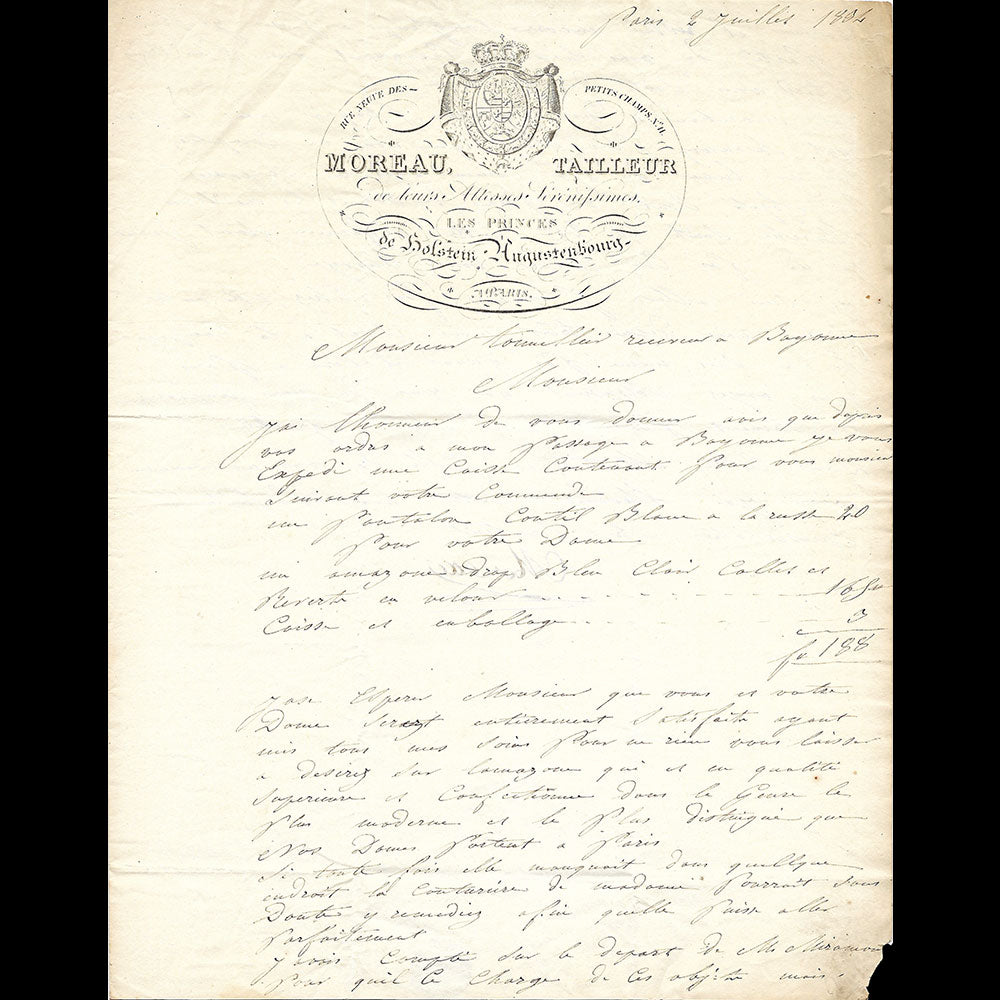 Paris 2 Juillet 183
RUE NEUVE DES PETITS CHAMPS N.º 11
MOREAU, TAILLEUR
de leurs Altesses Sérénissimes,
LES PRINCES
de Holstein-Augustenbourg
A PARIS.
Monsieur receveur a Bayonne
Monsieur
jai lhonneur De vous Donner avis que depuis
vos ordres a mon Passage a Bayonne je vous
Expedi une Caisse Contenant Pour vous monsieur
Suivant votre Commande
un Pantalon Coutil Blanc a la russe 20
Pour votre Dame
un amazone drap Bleu Clair Collet et
en velour 165
Caisse et enballage 3
fr 188
jose Esperer Monsieur que vous et votre
Dame Serezt entièrement Satisfaits ayant
mis tous mes Soins Pour ne rien vous laisser
a desirez Sur lamazone qui et en qualité
Superieure et Confectionné Dans le Genre le
Plus moderne et le Plus distingué que
Nos Dames Portent a Paris
Si toute fois elle manquoit dans quellque
endroit la Couturière de madame Pourrait Sans
Doute y remediez afin quelle Puisse aller
Parfaitement
javais Compté Sur le depart de M. Miramon
Pour quil Ce Charge De Ces objets mais